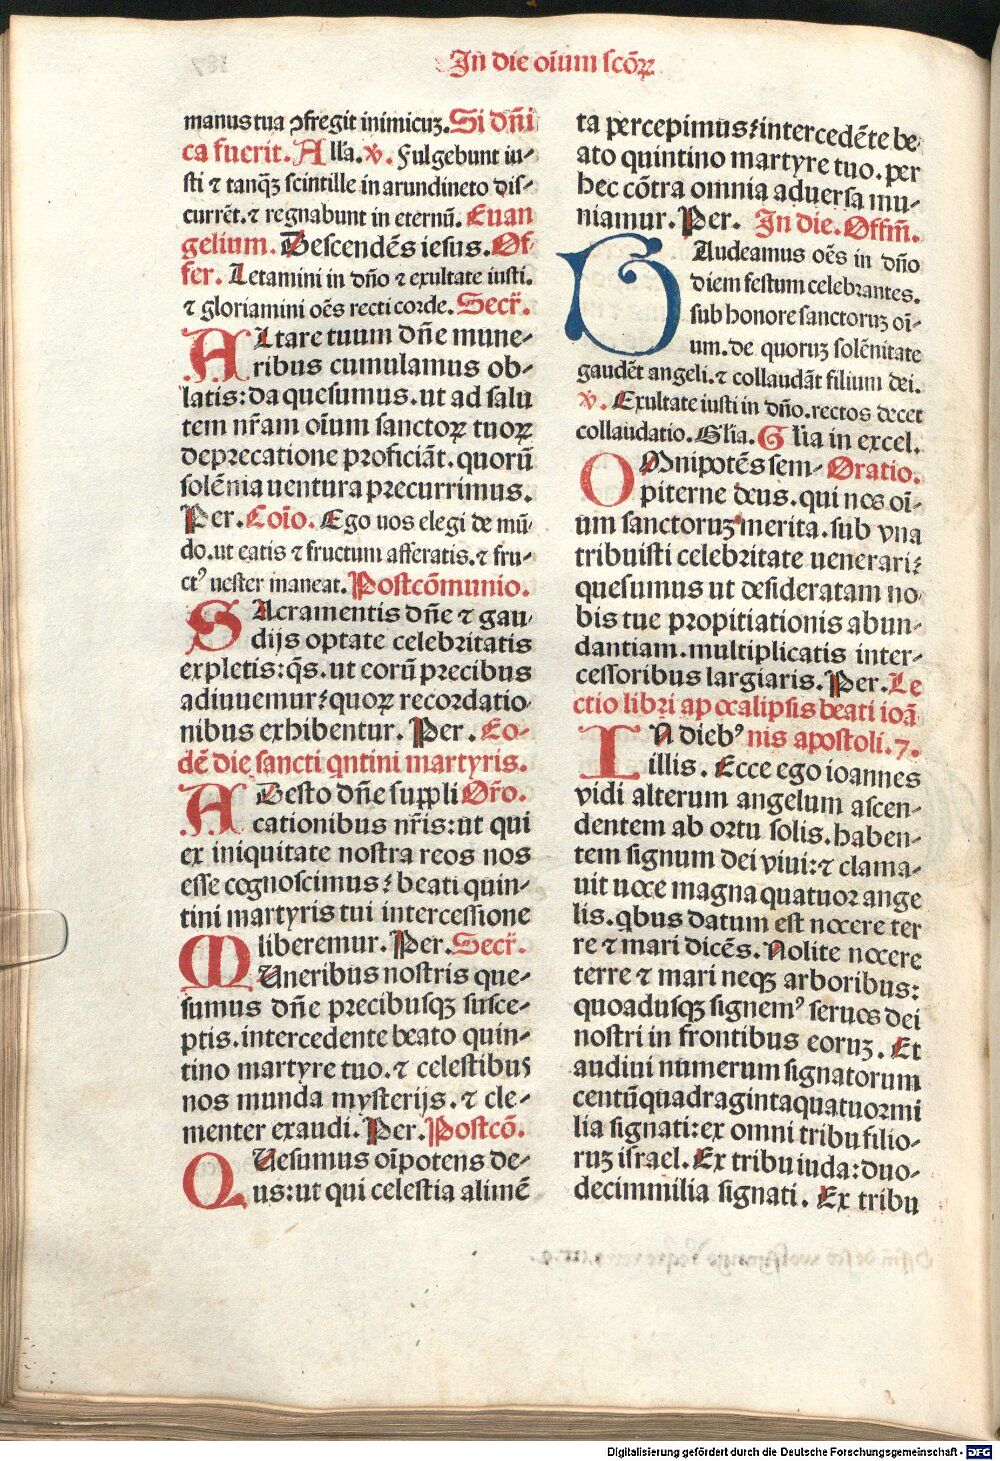 In die oīum scōꝝ
manus tua ꝯfregit inimicuꝫ. Si dn̄i
ca fuerit. All'a. ℣. Fulgebunt iu-
sti ⁊ tanqꝫ scintille in arundineto dis-
currēt. ⁊ regnabunt in eternū. Euan
gelium. Descendēs iesus. Of
fer. Letamini in dn̄o ⁊ exultate iusti.
⁊ gloriamini oēs recti corde. Secr̄.
ALtare tuum dn̄e mune-
ribus cumulamus ob-
latis: da quesumus. ut ad salu
tem nr̄am oīum sanctoꝝ tuoꝝ
deprecatione proficiāt. quorū
solēnia uentura precurrimus.
Per. Coīo. Ego uos elegi de mū-
do. ut eatis ⁊ fructum afferatis. ⁊ fru-
ctꝰ uester maneat. Postcōmunio.
SAcramentis dn̄e ⁊ gau-
dijs optate celebritatis
expletis: qs̄. ut corū precibus
adiuuemur: quoꝝ recordatio-
nibus exhibentur. Per. Eo-
dē die sancti qntini martyris.
ADesto dn̄e suppli Or̄o.
cationibus nr̄is: ut qui
ex iniquitate nostra reos nos
esse cognoscimus: beati quin-
tini martyris tui intercessione
liberemur. Per. Secr̄.
MUneribus nostris que-
sumus dn̄e precibusqꝫ susce-
ptis. intercedente beato quin-
tino martyre tuo. ⁊ celestibus
nos munda mysterijs. ⁊ cle-
menter exaudi. Per. Postcō.
QUesumus oīpotens de-
us: ut qui celestia alimē
ta percepimus: intercedēte be-
ato quintino martyre tuo. per
hec cōtra omnia aduersa mu-
niamur. Per. In die. Offm̄.
GAudeamus oēs in dn̄o
diem festum celebrantes.
sub honore sanctoruꝫ oī-
um. de quoruꝫ solēnitate
gaudēt angeli. ⁊ collaudāt filium dei.
℣. Exultate iusti in dn̄o. rectos decet
collaudatio. Gl'ia. Gl'ia in excel.
OMnipotēs sem- Oratio.
piterne deus. qui nos oī-
um sanctoruꝫ merita. sub vna
tribuisti celebritate uenerari:
quesumus ut desideratam no-
bis tue propitiationis abun-
dantiam. multiplicatis inter-
cessoribus largiaris. Per. Le
ctio libri apocalipsis beati ioā
IN diebꝰ nis apostoli. 7.
illis. Ecce ego ioannes
vidi alterum angelum ascen-
dentem ab ortu solis. haben-
tem signum dei viui: ⁊ clama-
uit uoce magna quatuor ange
lis. qbus datum est nocere ter
re ⁊ mari dicēs. Nolite nocere
terre ⁊ mari neqꝫ arboribus:
quoadusqꝫ signemꝰ seruos dei
nostri in frontibus eoruꝫ. Et
audiui numerum signatorum
centūquadragintaquatuormi
lia signati: ex omni tribu filio-
ruꝫ israel. Ex tribu iuda: duo-
decimmilia signati. Ex tribu
Digitalisierung gefördert durch die Deutsche Forschungsgemeinschaft - DFG